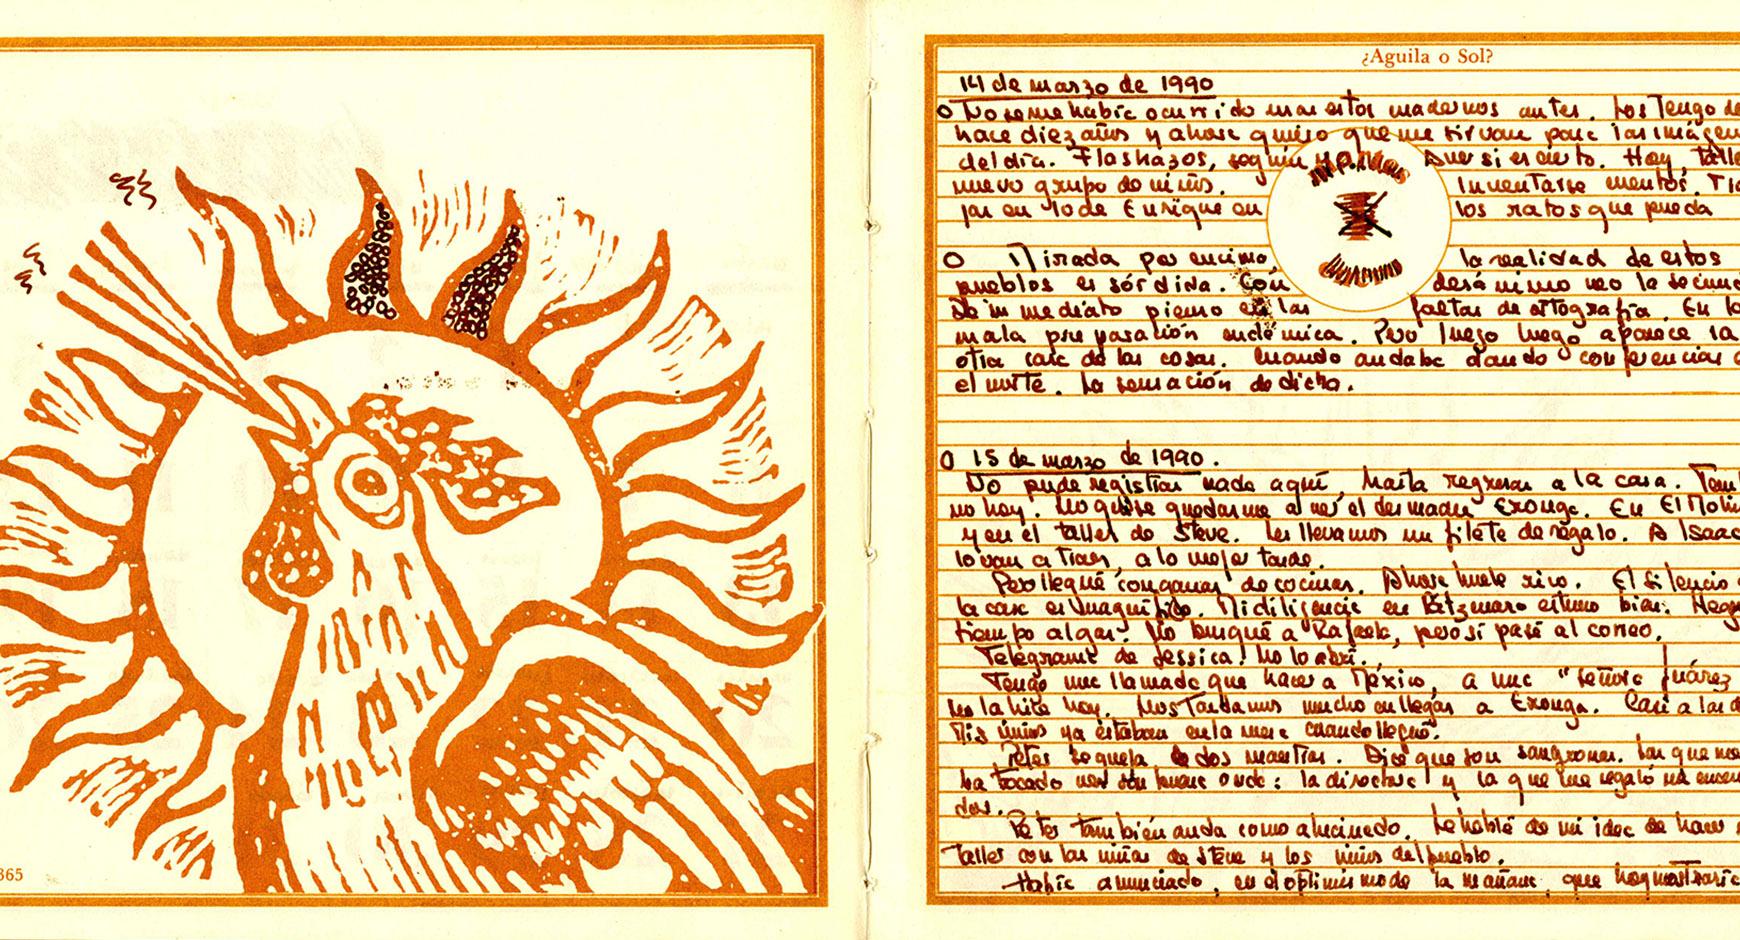 365
¿Aguila o Sol?
14 de marzo de 1990
No se me había ocurrido usar estos cuadernos antes. Los Tengo de
hace diez años y ahora quiero que me sirvan para las imágen
del día. Flashazos, según Que si es cierto. Hay, Talle
nuevo grupo de niños. Inventarse cuentos.
en lo de Enrique en los ratos que pueda
O Mirada por encima, la realidad de estos
pueblos es sórdida. Con desánimo veo la secund
De inmediato pienso en las faltas de ortografía. En la
mala preparación endémica. Pero luego luego aparece la
otra cara de las cosas. Cuando andaba dando conferencias
el norte. La sensación de dicha.
O 15 de marzo de 1990.
No pude registrar nada aquí, hasta regresar a la casa.
no hay. No quise quedarme al ver el desmadre Exonga. En El Molin
y en el taller de Steve. Les llevamos un filete de regalo. A Isaac
lo van a traer, a lo mejor tarde.
Pero llegué con ganas de cocinar. Ahora huele rico. El silencio
la casa es magnífico. Mi diligencia en Pátzcuaro estuvo bien.
tiempo algas. No busqué a Rafaela, pero sí pasé al correo.
Telegrama de Jessica! No lo abrí.
Tengo una llamada que hacer a México, a una "señora Juárez
No la hice hoy. Nos Tardamos mucho en llegar a Exonga. Casi a las
Mis niños ya estaban en la mesa cuando llegué.
Peter se queja de dos maestras. Dice que son sangronas. Las que me
ha tocado ver son buena onda: la directora y la que me regaló
dor.
Peter también anda como alucinado. Le hablé de mi idea de hacer
Taller con las niñas de Steve y los niños del pueblo.
Había anunciado, en el optimismo de la mañana, que hoy mostraría